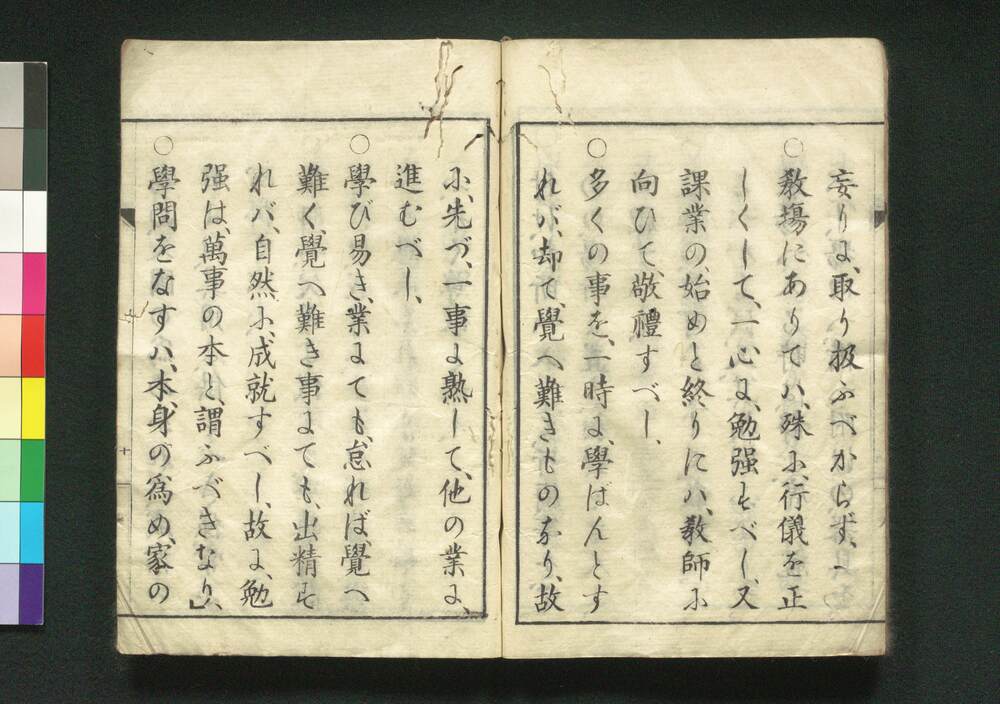 妄りに、取り扱ふべからず、
○教塲にありてハ、殊に、行儀を正
しくして、一心に、勉强すべし、又
課業の、始めと終りにハ、教師に
向ひて、敬禮すべし、
○多くの事を、一時に、學ばんとす
れバ、却て、覺へ難きものなり、故
に、先づ、一事に熟して、他の業に、
進むべし、
○學び易き、業にても、怠れば、覺へ
難く、覺へ難き事にても、出精す
れバ、自然に、成就すべし、故に、勉
强は、萬事の本と、謂ふべきなり、
○學問をなすハ、本身の爲め、家の